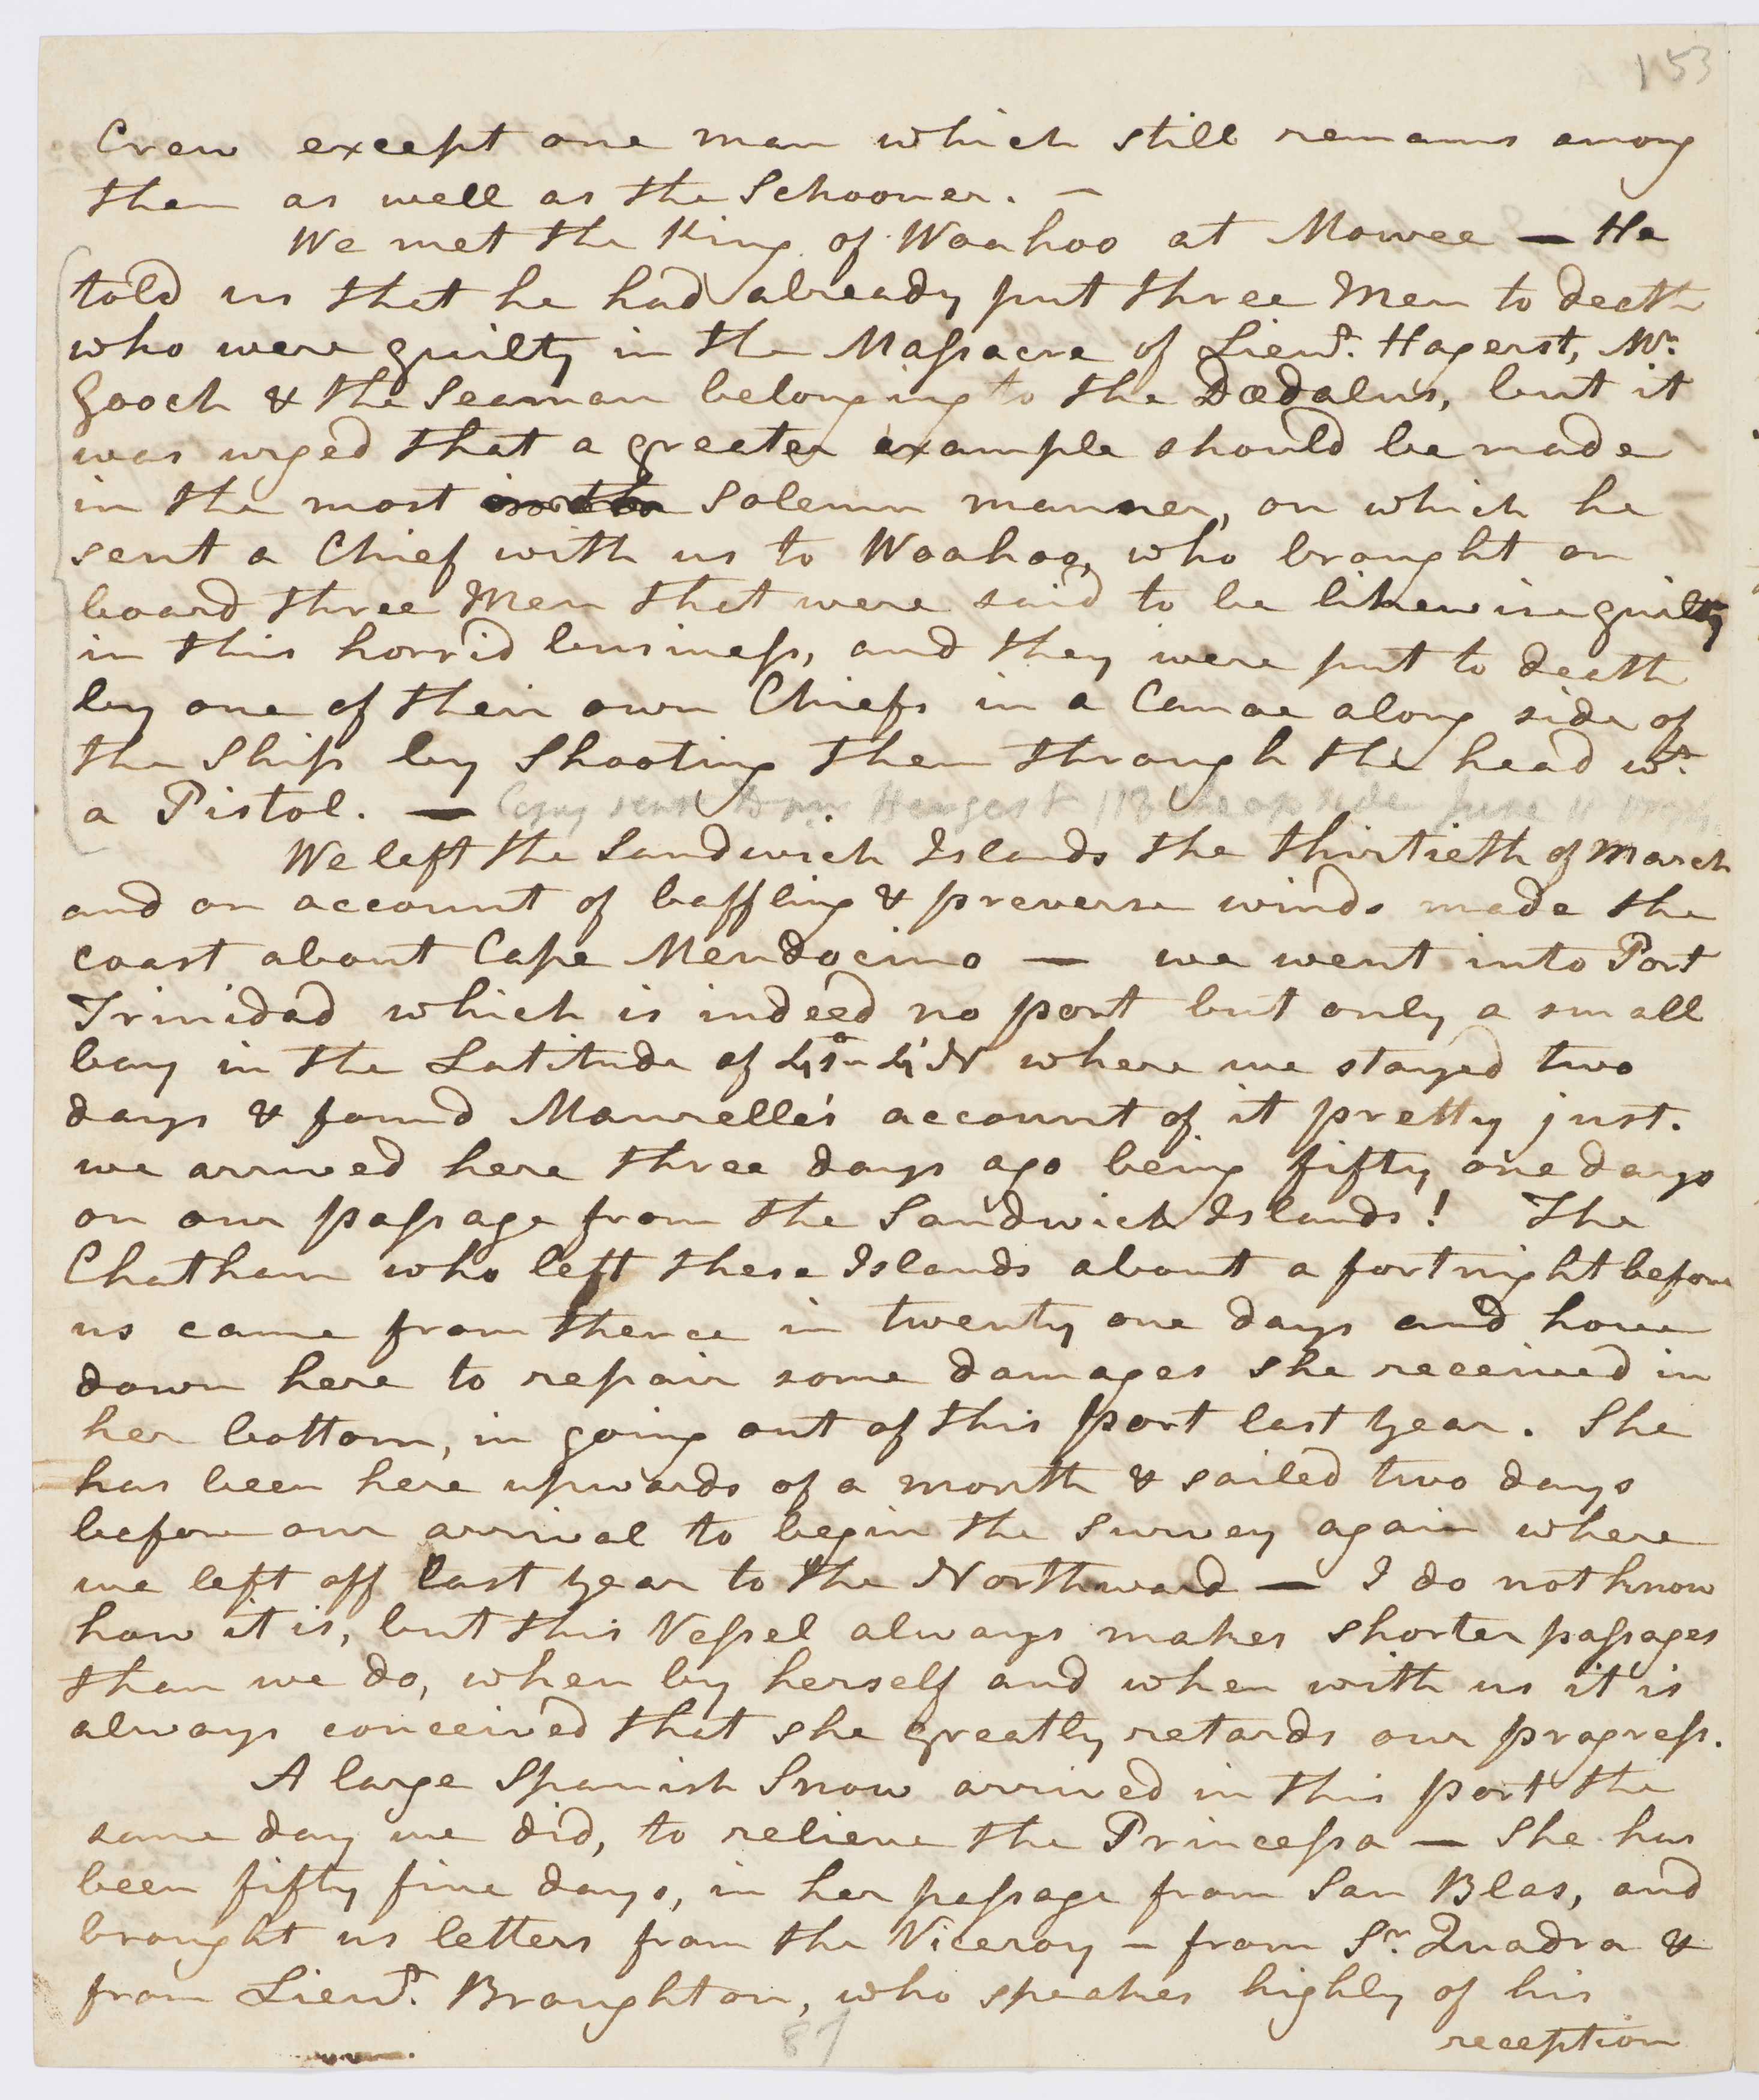 153
Crew except one man which still remains among
them as well as the Schooner. —
We met the King of Woahoo at Mowee — He
told us that he had already put three Men to death
who were guilty in the Massacre of Lieut. Hagerst, Mr.
Gooch & the Seaman belonging to the Dædalus, but it
was urged that a greater example should be made
in the most solemn manner, on which he
sent a Chief with us to Woahoo, who brought on
board three Men that were said to be likewise guilty
in this horrid business, and they were put to death
by one of their own Chiefs in a Canoe along side of
the Ship by Shooting them through the head wt.
a Pistol. — Copy sent to Mr Hergest 113 Cheapside June 11
We left the Sandwich Islands the thirtieth of March
and on account of baffling & preverse winds made the
coast about Cape Mendocino — we went into Port
Trinidad which is indeed no port but only a small
bay in the Latitude of 41°- 4' N where we stayed two
days & found Maurelle's account of it pretty just.
we arrived here three days ago being fifty one days
on our passage from the Sandwich Islands! The
Chatham who left these Islands about a fortnight before
us came from thence in twenty one days and hove
down here to repair some damages she received in
her bottom, in going out of this port last year. She
has been here upwards of a month & sailed two days
before our arrival to begin the survey again where
we left off last year to the Northward — I do not know
how it is, but this Vessel always makes shorter passages
than we do, when by herself and when with us it is
always conceived that she greatly retards our progress.
A large Spanish Snow arrived in this port the
same day we did, to relieve the Princessa — She has
been fifty five days, in her passage from San Blas, and
brought us letters from the Viceroy – from Sr. Quadra &
from Lieut. Broughton, who speakes highly of his
reception
87